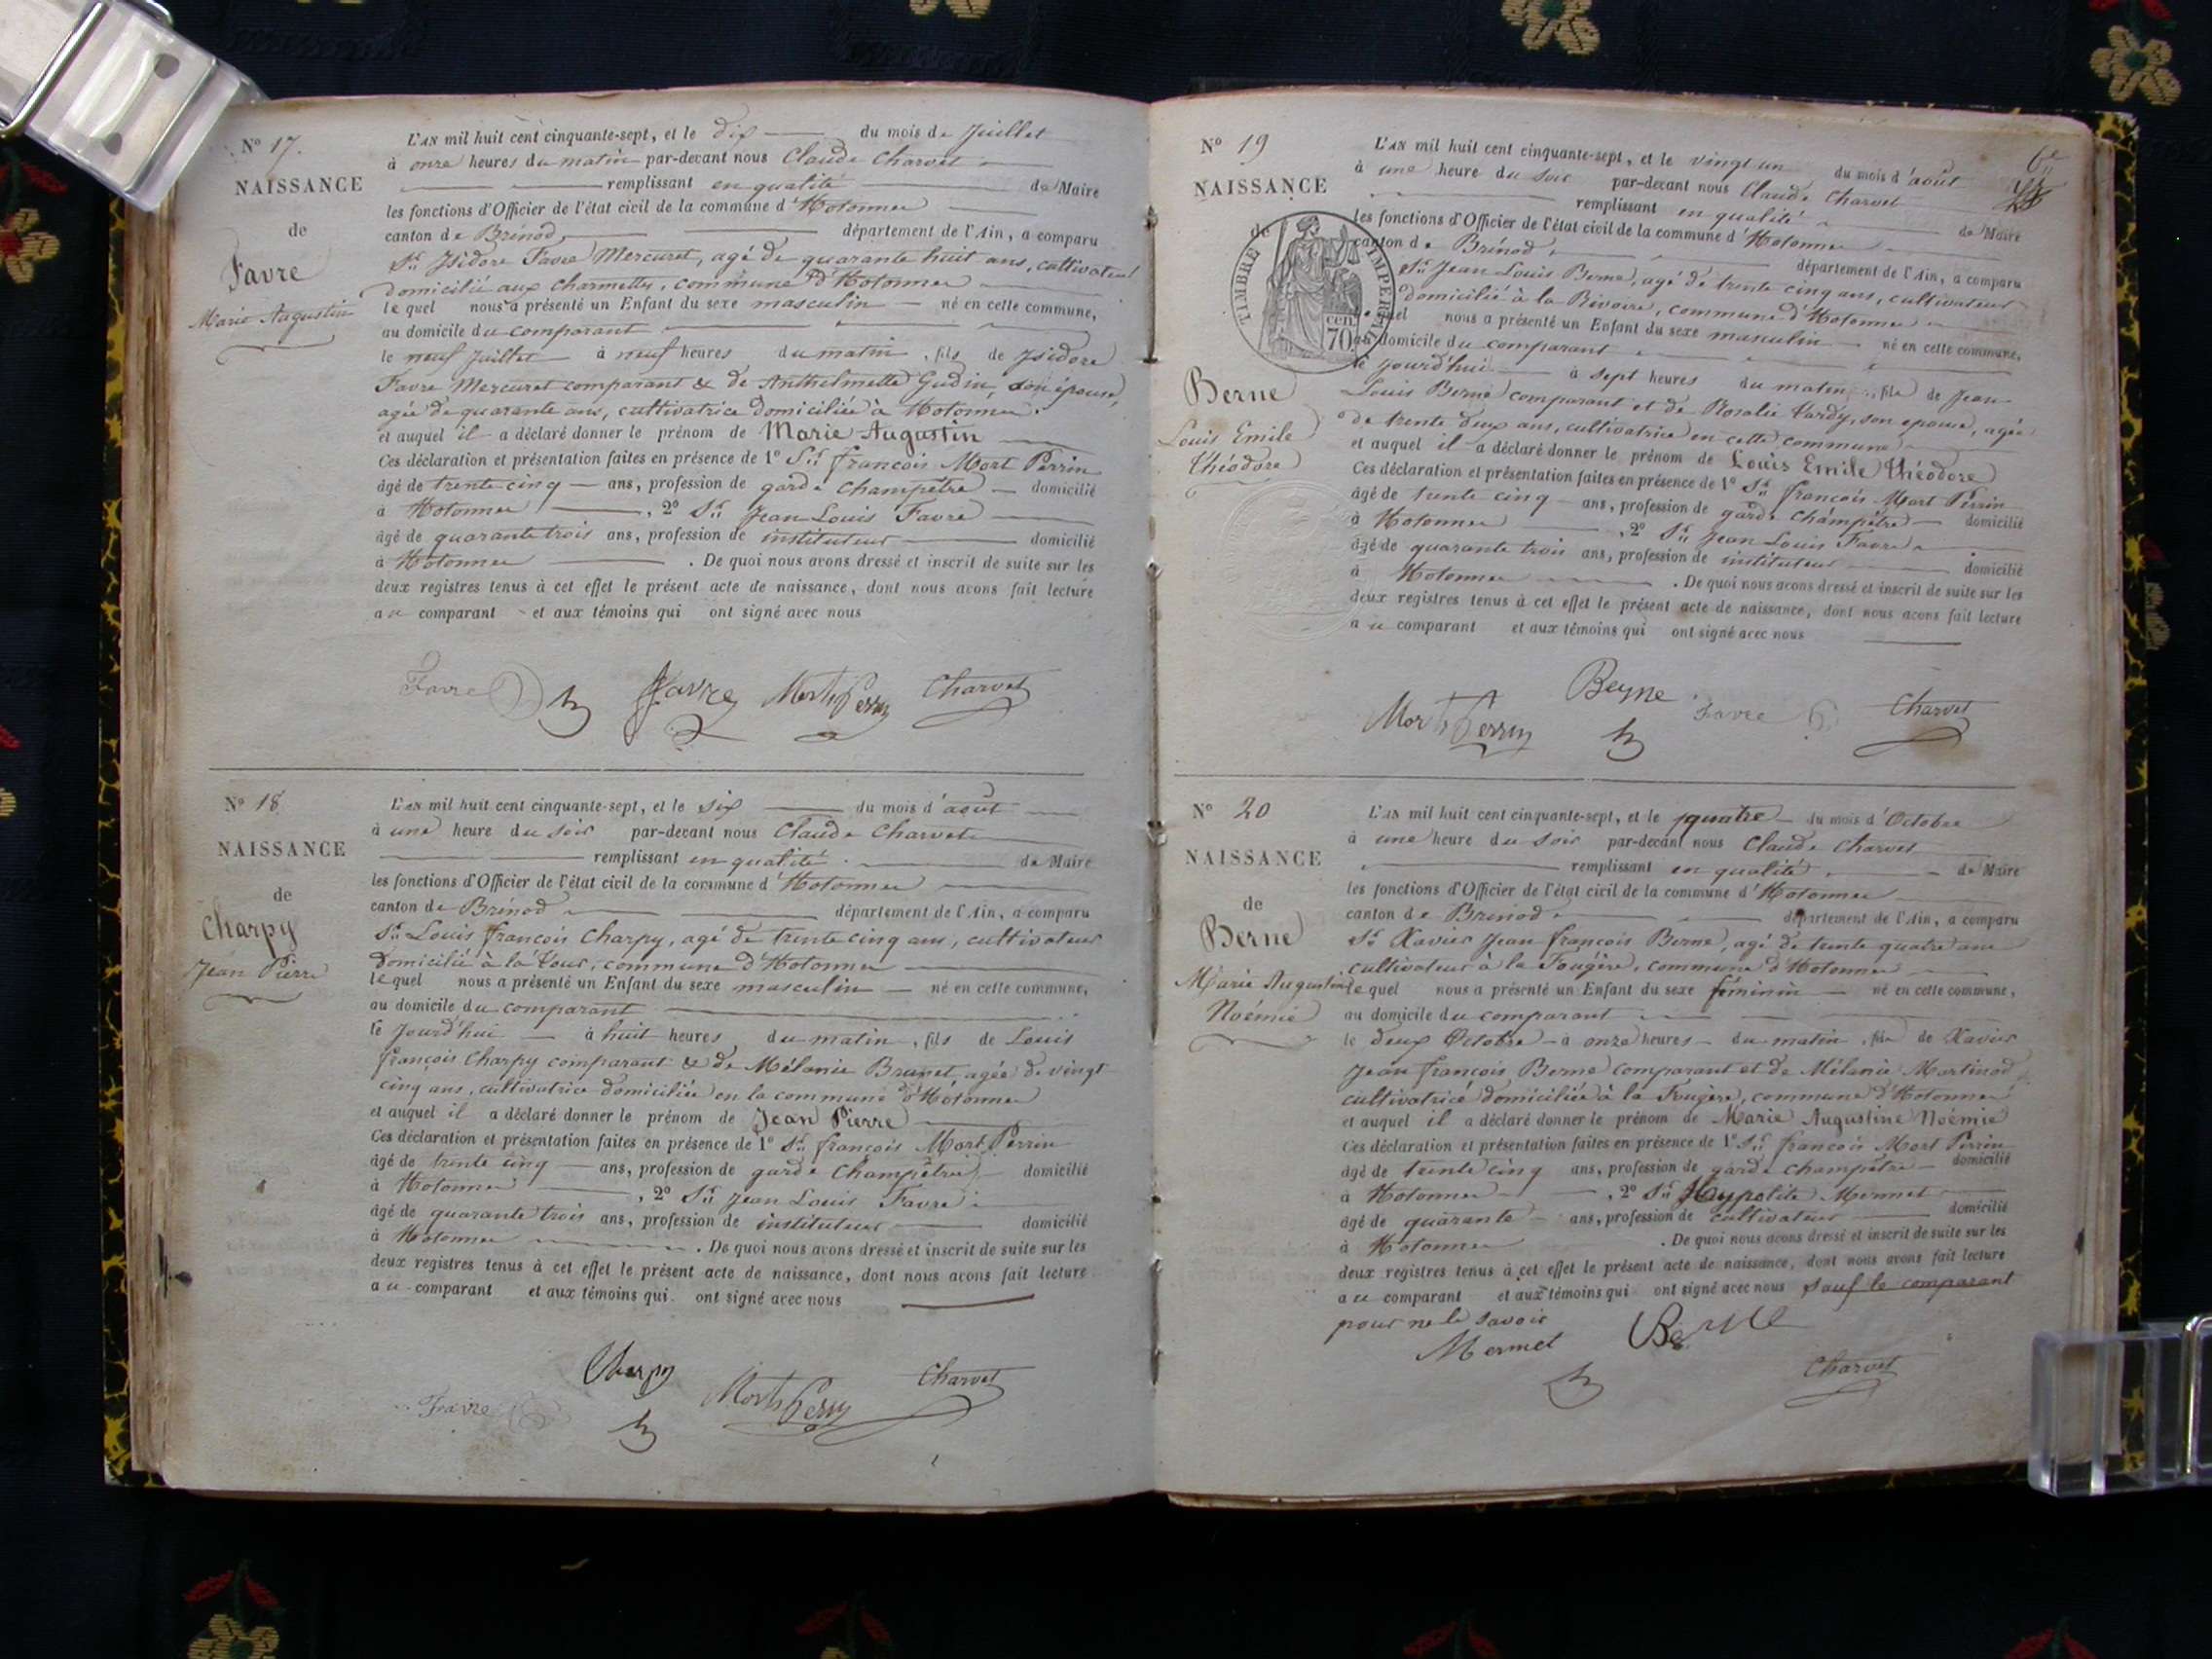 N° 17.
NAISSANCE
de
Favre
Marie Augustin
L'AN mil huit cent cinquante-sept, et le dix du mois de Juillet
à onze heures du matin par-devant nous Claude Charvet
remplissant en qualité de Maire
les fonctions d'Officier de l'état civil de la commune d'Hotonnes
canton de Brénod département de l'Ain, a comparu
Sr. Isidore Favre Mercuret, agé de quarante huit ans, cultivateur
domicilié aux charmettes, commune d'Hotonnes
lequel nous a présenté un Enfant du sexe masculin né en cette commune,
au domicile du comparant
le neuf Juillet à neuf heures du matin, fils de Isidore
Favre Mercuret comparant & de Anthelmette Gudin, son épouse,
agée de quarante ans, cultivatrice domiciliée à Hotonnes.
et auquel il a déclaré donner le prénom de Marie Augustin
Ces déclaration et présentation faites en présence de 1° Sr. françois Mort Perrin
âgé de trente cinq ans, profession de garde champêtre domicilié
à Hotonnes, 2° Sr. Jean Louis Favre
âgé de quarante trois ans, profession de instituteur domicilié
à Hotonnes. De quoi nous avons dressé et inscrit de suite sur les
deux registres tenus à cet effet le présent acte de naissance, dont nous avons fait lecture
au comparant et aux témoins qui ont signé avec nous
Favre Favre Mort Perrin Charvet
N° 18
NAISSANCE
de
Charpy
Jean Pierre
L'AN mil huit cent cinquante-sept, et le six du mois d'août
à une heure du soir par-devant nous Claude Charvet
remplissant en qualité de Maire
les fonctions d'Officier de l'état civil de la commune d'Hotonnes
canton de Brénod département de l'Ain, a comparu
Sr. Louis françois Charpy, agé de trente cinq ans, cultivateur
domicilié à la Tour, commune d'Hotonnes
lequel nous a présenté un Enfant du sexe masculin né en cette commune,
au domicile du comparant
le Jourd'hui à huit heures du matin, fils de Louis
françois Charpy comparant & de Mélanie Brunet, agée de vingt
cinq ans, cultivatrice domiciliée en la commune d'Hotonnes
et auquel il a déclaré donner le prénom de Jean Pierre
Ces déclaration et présentation faites en présence de 1° Sr. françois Mort Perrin
âgé de trente cinq ans, profession de garde Champêtre domicilié
à Hotonnes, 2° Sr. Jean Louis Favre
âgé de quarante trois ans, profession de instituteur domicilié
à Hotonnes. De quoi nous avons dressé et inscrit de suite sur les
deux registres tenus à cet effet le présent acte de naissance, dont nous avons fait lecture
au comparant et aux témoins qui ont signé avec nous
Favre Charpy Mort Perrin Charvet
6e
N° 19
NAISSANCE
de
TIMBRE IMPERIAL
70 cen
Berne
Louis Emile
Théodore
L'AN mil huit cent cinquante-sept, et le vingt un du mois d'août
à une heure du soir par-devant nous Claude Charvet
remplissant en qualité de Maire
les fonctions d'Officier de l'état civil de la commune d'Hotonnes
canton de Brénod département de l'Ain, a comparu
Sr. Jean Louis Berne, agé de trente cinq ans, cultivateur
domicilié à la Rivoire, commune d'Hotonnes
lequel nous a présenté un Enfant du sexe masculin né en cette commune,
au domicile du comparant
le jourd'hui à sept heures du matin, fils de Jean
Louis Berne comparant et de Rosalie Tardy, son epouse, agée
de trente deux ans, cultivatrice en cette commune
et auquel il a déclaré donner le prénom de Louis Emile Théodore
Ces déclaration et présentation faites en présence de 1° Sr. françois Mort Perrin
âgé de trente cinq ans, profession de garde Champêtre domicilié
à Hotonnes, 2° Sr. Jean Louis Favre
âgé de quarante trois ans, profession de instituteur domicilié
à Hotonnes. De quoi nous avons dressé et inscrit de suite sur les
deux registres tenus à cet effet le présent acte de naissance, dont nous avons fait lecture
au comparant et aux témoins qui ont signé avec nous
Mort Perrin Favre Charvet
N° 20
NAISSANCE
de
Berne
Marie Augustine
Noémie
L'AN mil huit cent cinquante-sept, et le quatre du mois d'Octobre
à une heure du soir par-devant nous Claude Charvet
remplissant en qualité de Maire
les fonctions d'Officier de l'état civil de la commune d'Hotonnes
canton de Brénod département de l'Ain, a comparu
Sr. Xavier Jean françois Berne, agé de trente quatre ans
cultivateur à la Fougère, commune d'Hotonnes
lequel nous a présenté un Enfant du sexe féminin né en cette commune,
au domicile du comparant
le deux Octobre à onze heures du matin, fille de Xavier
Jean françois Berne comparant et de Mélanie Martinod
cultivatrice domiciliée à la Fougère, commune d'Hotonnes
et auquel il a déclaré donner le prénom de Marie Augustine Noémie
Ces déclaration et présentation faites en présence de 1° Sr. françois Mort Perrin
âgé de trente cinq ans, profession de garde champêtre domicilié
à Hotonnes, 2° Sr. Hyppolite Mermet
âgé de quarante ans, profession de cultivateur domicilié
à Hotonnes. De quoi nous avons dressé et inscrit de suite sur les
deux registres tenus à cet effet le présent acte de naissance, dont nous avons fait lecture
au comparant et aux témoins qui ont signé avec nous sauf le comparant
pour ne le savoir
Mermet Berne
Charvet